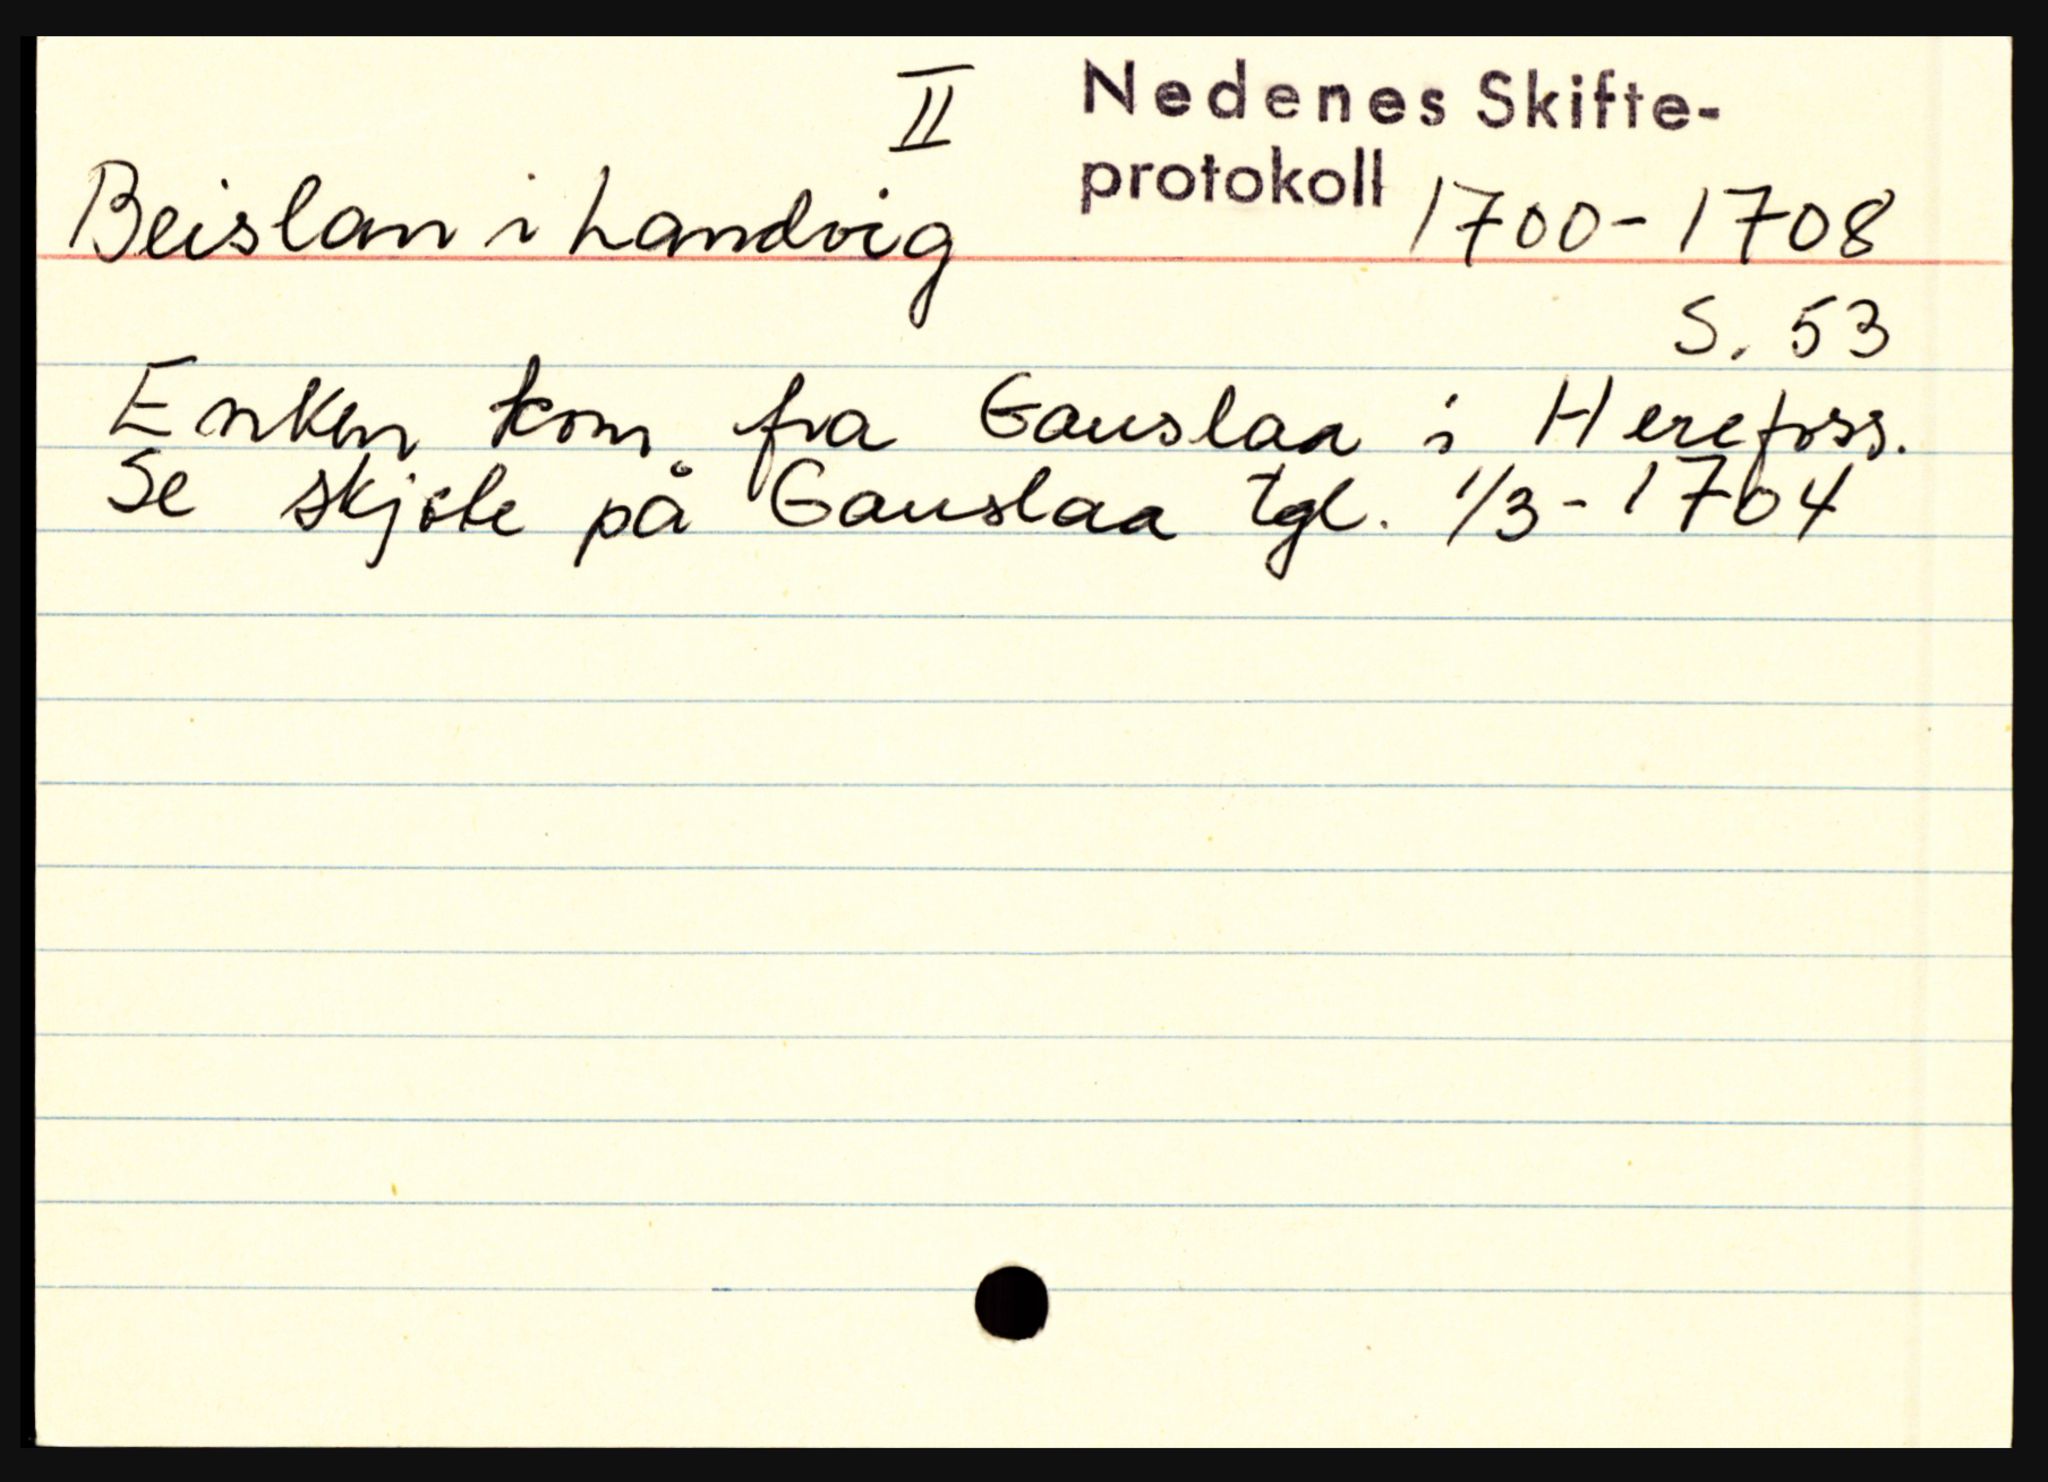 II Nedenes Skifte-
protokoll
Beislan i Landvig 1700-1708
S. 53
Enken kom fra Gauslaa i Herefoss.
Se skjøte på Gauslaa tgl. 1/3-1704